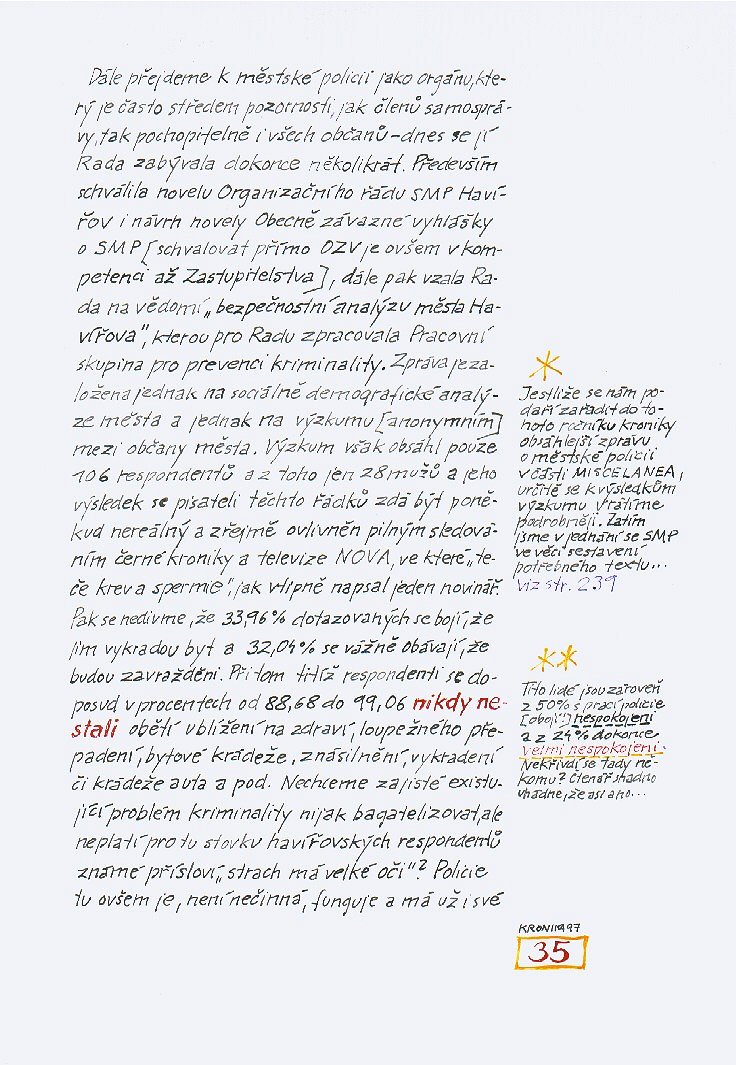 Dále přejdeme k městské policii jako orgánu, kte-
rý je často středem pozornosti, jak členů samosprá-
vy, tak pochopitelně i všech občanů – dnes se jí
Rada zabývala dokonce několikrát. Především
schválila novelu Organizačního řádu SMP Haví-
řov i návrh novely Obecně závazné vyhlášky
o SMP [schvalovat přímo OZV je ovšem v kom-
petenci až Zastupitelstva], dále pak vzala Ra-
da na vědomí „bezpečnostní analýzu města Ha-
vířova", kterou pro Radu zpracovala Pracovní
skupina pro prevenci kriminality. Zpráva je za-
ložena jednak na sociálně demografické analý-
ze města a jednak na výzkumu [anonymním]
mezi občany města. Výzkum však obsáhl pouze
106 respondentů a z toho jen 28 mužů a jeho
výsledek se pisateli těchto řádků zdá být poně-
kud nereálný a zřejmě ovlivněn pilným sledová-
ním černé kroniky a televize NOVA, ve které „te-
če krev a spermie", jak vtipně napsal jeden novinář.
Pak se nedivme, že 33,96% dotazovaných se bojí, že
jim vykradou byt a 32,04% se vážně obávají, že
budou zavražděni. Při tom titíž respondenti se do-
posud v procentech od 88,68 do 99,06 nikdy ne-
stali obětí ublížení na zdraví, loupežného pře-
padení, bytové krádeže, znásilnění, vykradení
či krádeže auta a pod. Nechceme zajisté existu-
jící problém kriminality nijak bagatelizovat, ale
neplatí pro tu stovku havířovských respondentů
známé přísloví „strach má velké oči"? Policie
tu ovšem je, není nečinná, funguje a má už i své
*
Jestliže se nám po-
daří zařadit do to-
hoto ročníku kroniky
obsáhlejší zprávu
o městské policii
v části MISCELANEA,
určitě se k výsledkům
výzkumu vrátíme
podrobněji. Zatím
jsme v jednání se SMP
ve věci sestavení
potřebného textu...
viz str. 239
**
Tito lidé jsou zároveň
z 50% s prací policie
[obojí!] nespokojeni
a z 24% dokonce
velmi nespokojeni.
Nekřivdí se tady ně-
komu? Čtenář snadno
uhádne, že asi ano...
KRONI1997
35